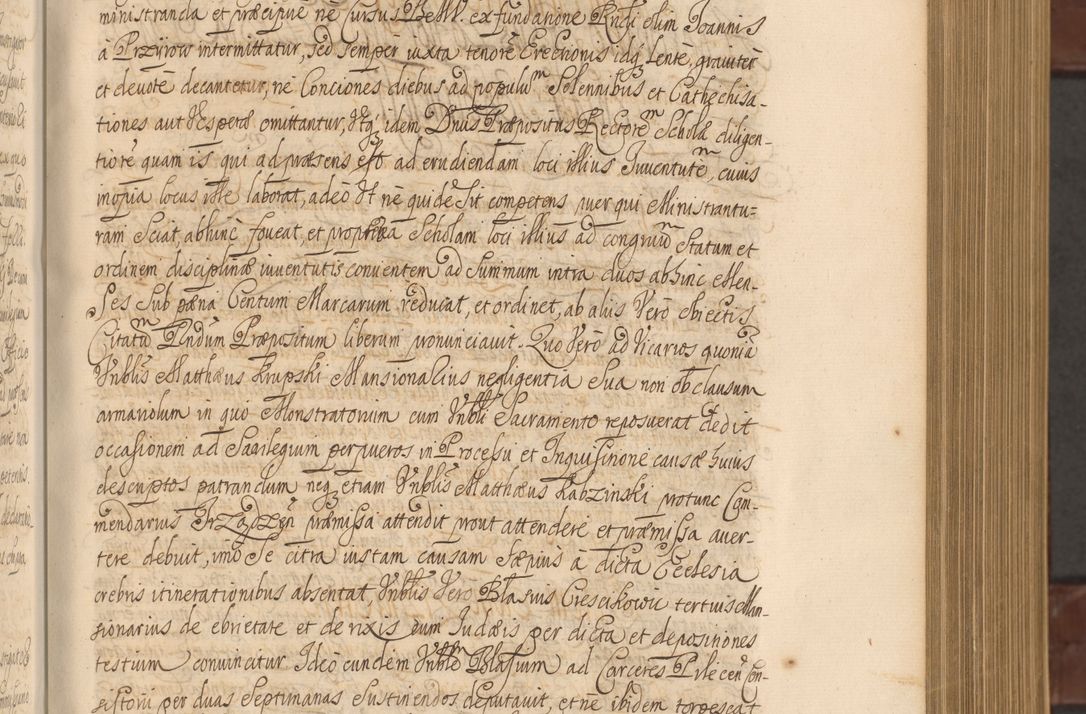 ministranda et præcipuè nè Cursus BeMV. ex fundatione Rndi olim Joannis
à Przyrow intermittatur, sed semper iuxta tenorē Erectionis idq. lentè, graviter
et devotè decantetur, nè Conciones diebus ad populum Solennibus et Cathechisa-
tiones aut Vesperæ omittantur, Vtq. idem Dnus Præpositus Rectorem Scholæ diligen-
tiorē quam is qui ad præsens est ad erudiendam loci illius Juventutem, cuius
inopia locus iste laborat, adeò Vt nè quidē sit competens puer qui Ministrantu-
ram Sciat, abhinc foveat, et propria Scholam loci illius ad congruum Statum et
ordinem disciplinæ iuventutis convientem ad summum intra duos abhinc Men-
ses sub pæna Centum Marcarum reducat, et ordinet, ab aliis Verò obiectis
Citatum Rndum Præpositum liberum pronunciavit. Quo Verò ad Vicarios quoniā
Vnblis Matthæus Krupski Mansionalius negligentia sua non obclausum
armariolum in quo Monstratorium cum Vnbli Sacramento reposuerat dedit
occasionem ad Sacrilegium per pueros in Processu et Inquisitione causæ huius
descriptos patrandum neq. etiam Vnblis Matthæus Kabzinski protunc Com-
mendarius præmissa attendit prout attendere et præmissa aver-
tere debuit, imo se citra iustam causam sæpius à dicta Ecclesia
crebris itinerationibus absentat, Vnblis Verò Blasius Crescikowic tertius Man-
sionarius de ebrietate et de rixis cum Judæis per dicta et depositiones
testium convincitur Ideò eundem Blasium ad Carceres Pilecen Con-
sistorii per duas Septimanas Sustinendos deputavit, et nè ibidem torpescat